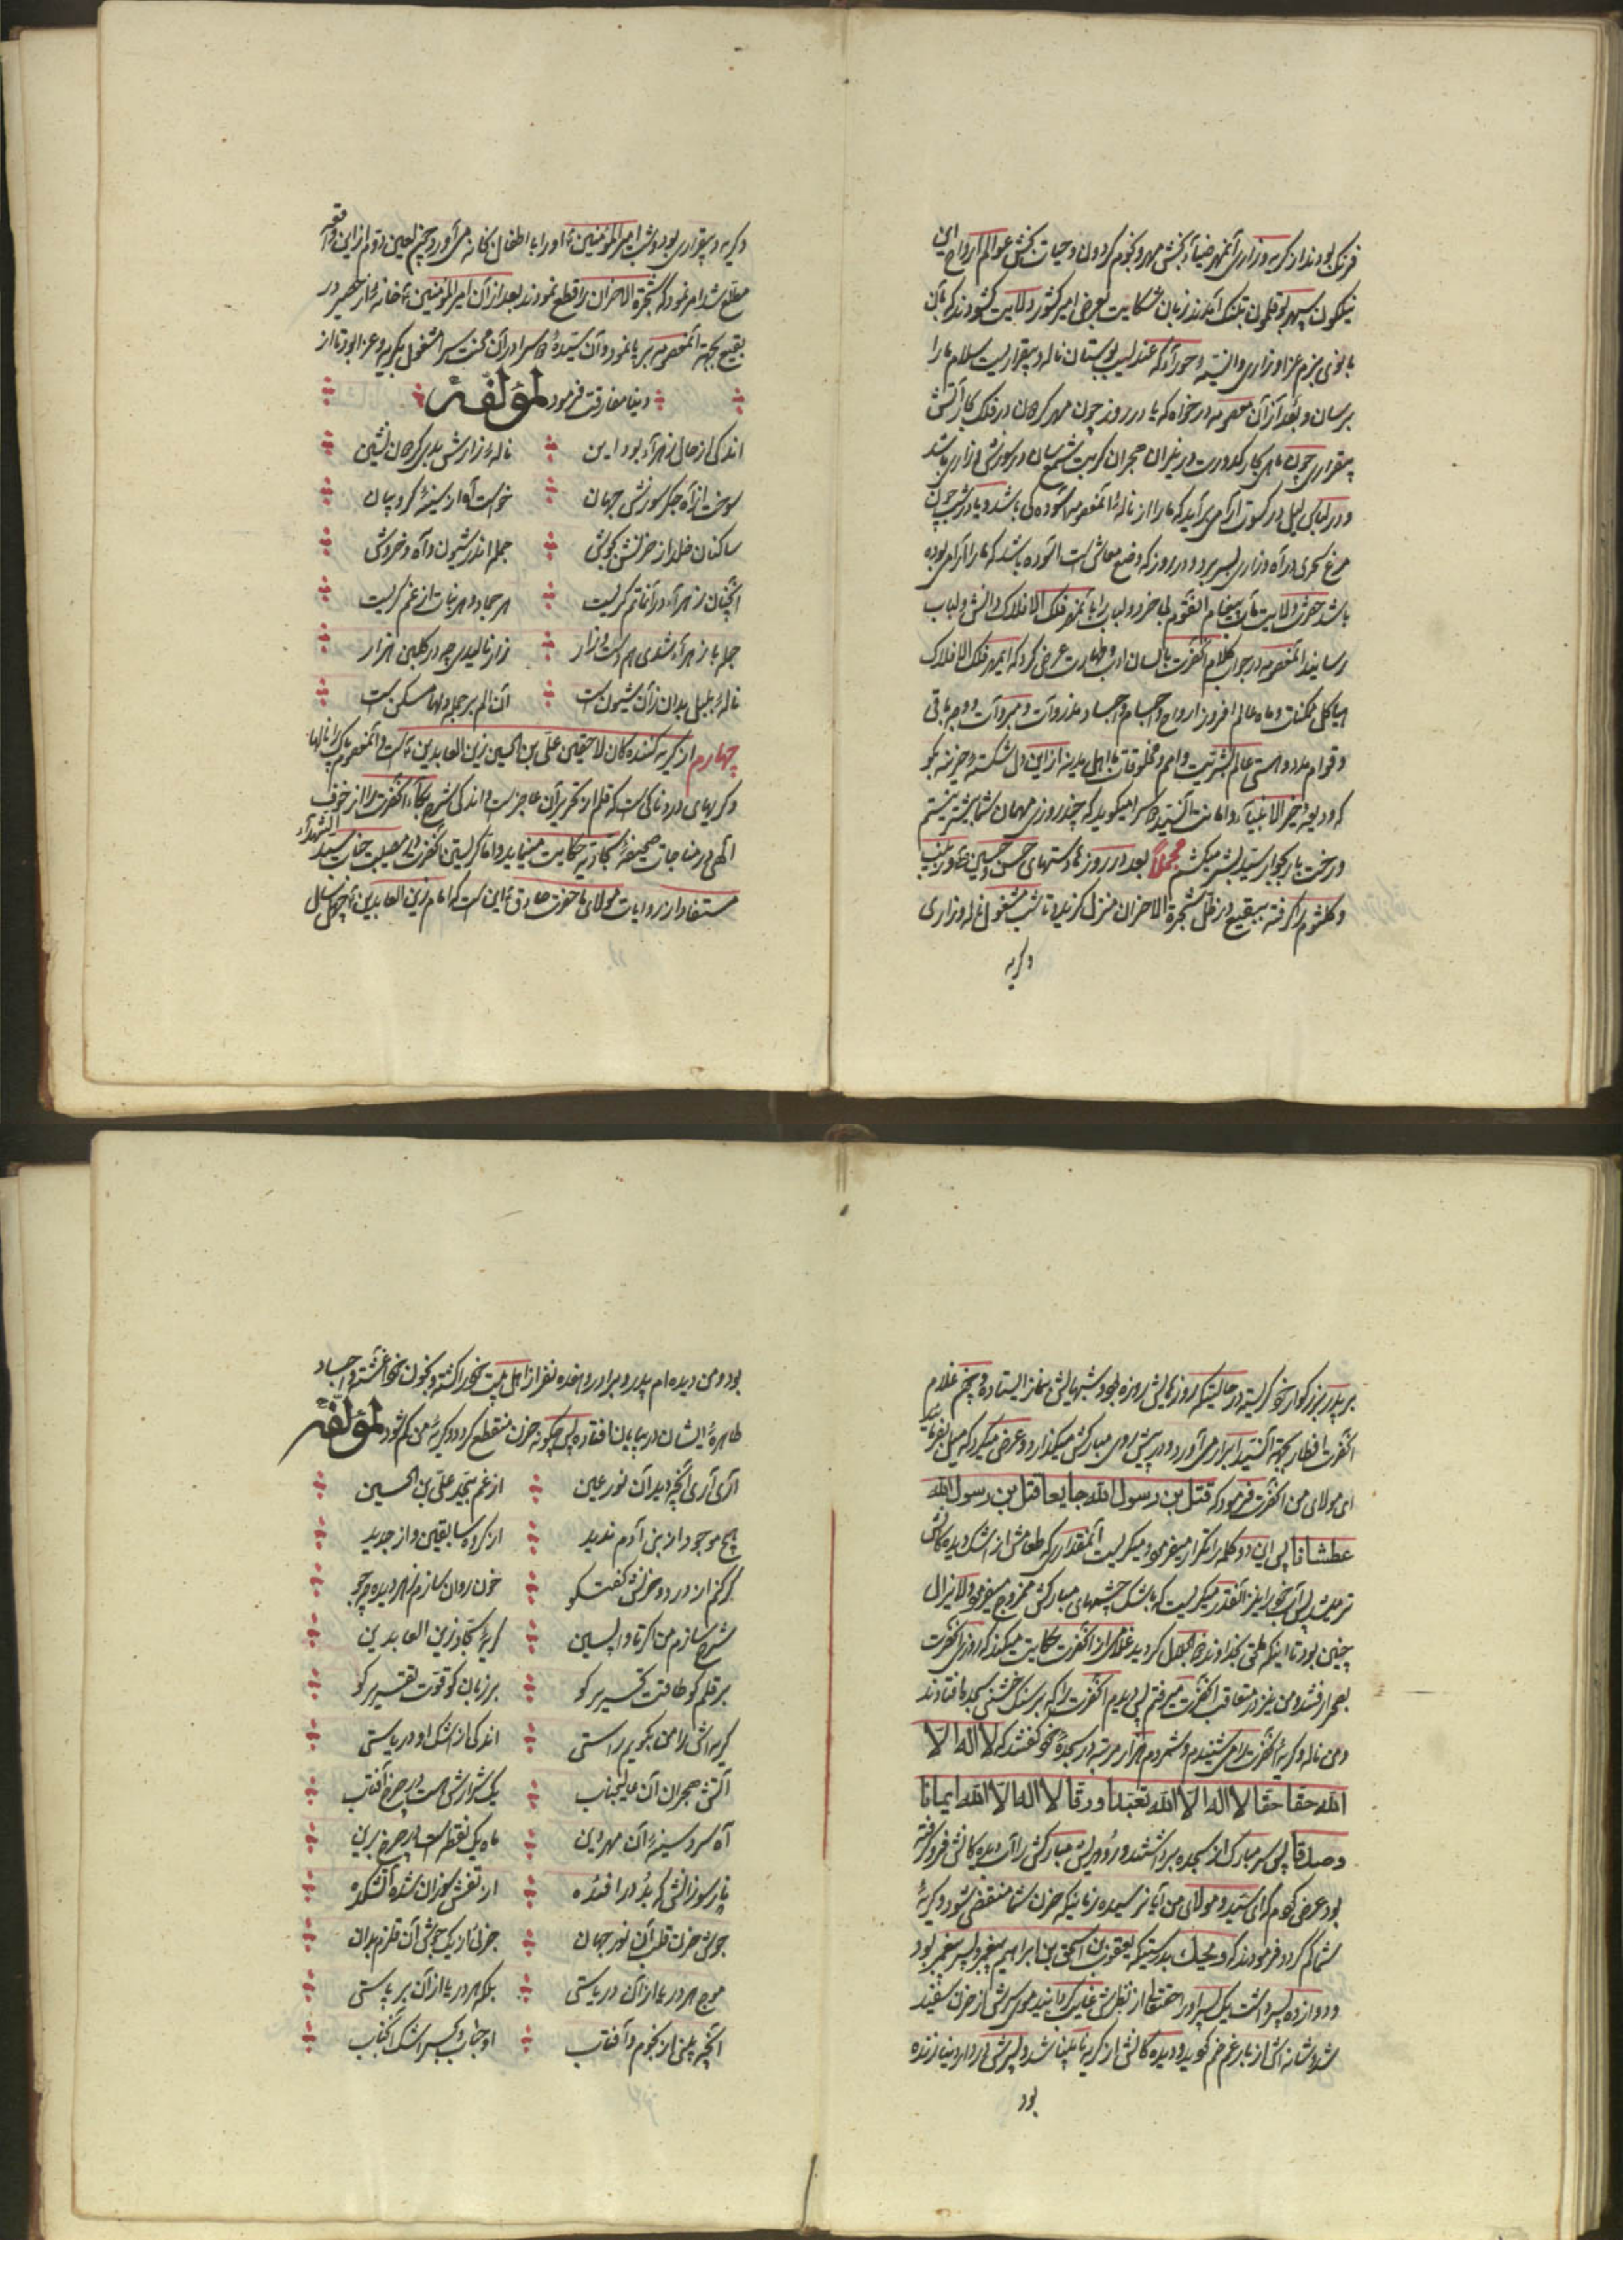 فرنک بودند از کریه وزاری آنمهر ضیآء بخش مهر و نجوم کردون و حیات بخش عوالم ارواح این
نیلکون سپهر بوقلمون بتنک آمدند زبان شکایت بعرض امیر کشور ولایت کشودند که بآن
بانوی بزم عزا و زاری وانسیّهٴ حورآء که عندلیب بوستان ناله و بیقراریست سلام ما را
برسان و بعد از آن معصومه درخواه که یا در روز چون مهر رخشان در فلک کار آتش
بیقراری چون ماهی
و در لباس لیل در کسوت آرامی برآید که ما را از نالهٴ آنمعصومه آسوده کی باشد و یا در شب چون
مرغ سحری در آه و زاری بسر برد و در روز که وضع معاش است آسوده باشد که ما را آرامی بوده
باشد حضرت ولایت مآب پیغام آنقوم بی خرد و لباب را بآنمهر فلک الافلاک دانش و لباب
رسانید آنمعصومه در جواب کلام آنحضرت بلسان ادب و طهارت عرض کرد که ایمهر فلک الافلاک
هیاکل ممکنات و ماه عالم افروز ارواح و اجسام و اجساد مذروآت و مبروآت و وجه باقی
و قوام مدد و هستی عالم بشریّت و امم و مخلوقات باهل مدینه از این دل شکسته و حزینه بکو
که ودیعهٴ خیر الانبیآء و امانت آنسیّد دوسرا میکوید که چند روزی مهمان شما بیشتر نیستم
و رخت بار بجوار سیّد بشر میکشم مجملاً بعد در روزها دستهای حسن و حسین و زینب
و کلثوم را کرفته ببقیع در ظلّ شجرة الاحزان منزل کزیده تا شب مشغول ناله و زاری
و کریه
و کریه و بیقراری بود و شب امیر المؤمنین ٴ او را با اطفال بخانه می آورد چون لعین دوّم از این واقعه
مطّلع شد امر نمود که شجرة الاحزان را قطع نمودند بعد از آن امیر المؤمنین ٴ خانهٴ از حصیر در
بقیع بجهة آنمعصومه بر پا نمود و آن سیّدهٴ دوسرا در آن محنت سرا مشغول بکریه و عزا بود تا از
دنیا مفارقت فرمود لمؤلّفه
اندکی از حال زهرآء بود این
ناله و زارش بدی کرهان نشین
سوخت از آه جکر سوزش جهان
خواست آواز سینهٴ کروبیان
ساکنان خلد از حزنش بجوش
جمله اندر شیون و آه و خروش
آنچنان زهرآء در آن ماتم کریست
هر جماد و هر نبات از غم کریست
جمله با زهرآء شدی هم دشت و زار
زار نالیدی چه در کلبن هزار
نالهٴ بلبل بدان زآن شیون است
آن الم بر جمله دلها مسکن است
چهارم از کریه کننده کان لاحقین علیّ بن الحسین زین العابدین ٴ است و آنمعصوم پاک را نالها
و کریهای دردناکی است که قلم از تحریر آن عاجز است و اندکی شرح بکآء آنحضرت را از خوف
الهی در مناجات صحیفهٴ سجّادیّه حکایت مینماید و امّا کریستن آنحضرت در مصیبت جناب سیّد الشهدآء
مستفاد از روایات مولای ما حضرت صادق ٴ این است که امام زین العابدین ٴ چهل سال
بر پدر بزرکوار خود کریست در حالتیکه روزهایش روزه بود و شبهایش بنماز ایستاده و چون غلام
آنحضرت افطار بجهة آنسیّد ابرار می آورد و در پیش روی مبارکش میکذارد و عرض میکرد که میل بفرمائید
ای مولای من آنحضرت میفرمود که قتل بن رسول الله جایعا قتل بن رسول الله
عطشانا پس این دو کلمه را تکرار میفرمود و میکریست آنمقدار که طعامش از اشک دیده کانش
تر میشد پس آب خود را نیز آنقدر میکریست که باشک چشمهای مبارکش ممزوج میفرمود و لا یزال
چنین بود تا اینکه ملحق بخداوند خود جلّ کردید غلامی از آنحضرت حکایت میکند که روزی آنحضرت
بصحرا رفتند و من نیز در متعاقب آنحضرت میرفتم پس دیدم آنحضرت را که بر سنک خشنی بسجده افتادند
و من ناله و کریهٴ آنحضرت را می شنیدم و شمردم هزار مرتبه در سجدهٴ خود کفتند که لا اله الّا
الله حقا حقا لا اله الّا الله تعبّدا و رقا لا اله الّا الله ایمانا
و صدقا پس سر مبارک از سجده برداشتند و رو و ریش مبارکش را آب دیده کانش فرو کرفته
بود عرض کردم که ای سیّد و مولای من آیا نرسیده زمانیکه حزن شما منقضی شود و کریهٴ
شما کم کردد فرمودند که ویحک بدرستیکه یعقوب بن اسحق بن ابراهیم پیغمبر و پسر پیغمبر بود
و دوازده پسر داشت یک پسر او را حقتعالی از نظرش غایب کردانید موی سرش از حزن سفید
شد و شانه اش از بار غم خم کردید و دیده کانش از کریه نابینا شد و پسرش در دار دنیا زنده
بود
بود و من دیده ام پدر و برادر و هفده نفر از اهل بیت خود را کشته و بخون خود آغشته و اجساد
طاهرهٴ ایشان در بیابان افتاده پس چکونه حزن منقطع کردد و کریهٴ من کم شود لمؤلّفه
آری آری آنچه دید آن نور عین
از غم بیحدّ علیّ بن الحسین
هیچ موجود از بنی آدم ندید
از کروه سابقین و از جدید
کر کنم از درد و حزنش کفتکو
خون روان سازم ز هر دیده چو جو
شرح سازم من اکر تا واپسین
کریهٴ سجّاد زین العابدین
بر قلم کو طاقت تحریر کو
بر زبان کو قوّت تقریر کو
کریه اش را من بکویم راستی
اندکی از اشک او دریاستی
آتش هجران آن عالیجناب
یک شرارش هست در چرخ آفتاب
آه سرد سینهٴ آن مهر دین
ماه یک نقطه است در چرخ برین
نار سوزانش که بد در افئده
از تفش سوزان شده آتشکده
جوش حزن قلب آن نور جهان
جزئی از یک جوش آن قلزم بدان
موج هر دریا از آن دریاستی
بلکه هر دریا از آن بر پاستی
آنچه بینی از نجوم و آفتاب